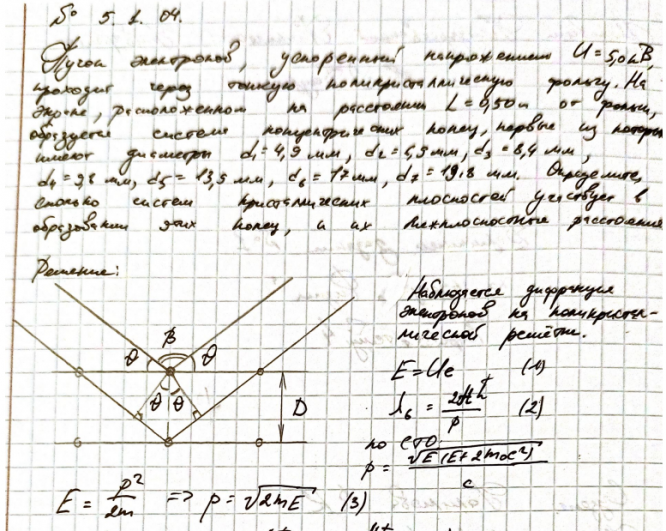 № 5.1.04.
Пучок электронов, ускоренный напряжением U = 5,0 кВ,
проходит через тонкую поликристаллическую фольгу. На
экране, расположенном на расстоянии L = 0,50м от фольги,
образуется система концентрических колец, первые из которых
имеют диаметры d₁ = 4,9 мм, d₂ = 5,5 мм, d₃ = 8,4 мм,
d₄ = 9,8 мм, d₅ = 13,5 мм, d₆ = 17 мм, d₇ = 19.8 мм. Определите,
сколько систем кристаллических плоскостей участвует в
образовании этих колец, и их межплоскостные расстояния
Решение:
Наблюдается дифракция
электронов на поликристал-
лической решётке.
β
θ θ
E = Ue (1)
θ θ
D
λ_б = 2πħ/p (2)
по СТО
p = √(E(E+2m₀c²))/c
E = p²/2m => p = √(2mE) (3)